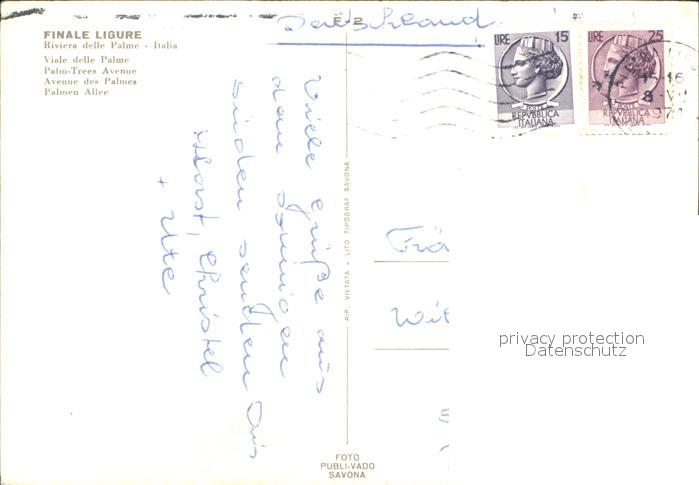 FINALE LIGURE
Riviera delle Palme - Italia
Viale delle Palme
Palm-Trees Avenue
Avenue des Palmes
Palmen Allee
E-2
Deutschland
LIRE 15
POSTE
REPVBBLICA
ITALIANA
LIRE 25
REPVBBLICA
ITALIANA
15-16
8
Viele Grüße aus
dem sonnigen
Süden senden
Horst, Christel
+ Ute
RIP. VIETATA - LITO TIPOGRAF SAVONA
Frä
Wil
privacy protection
Datenschutz
FOTO
PUBLI-VADO
SAVONA